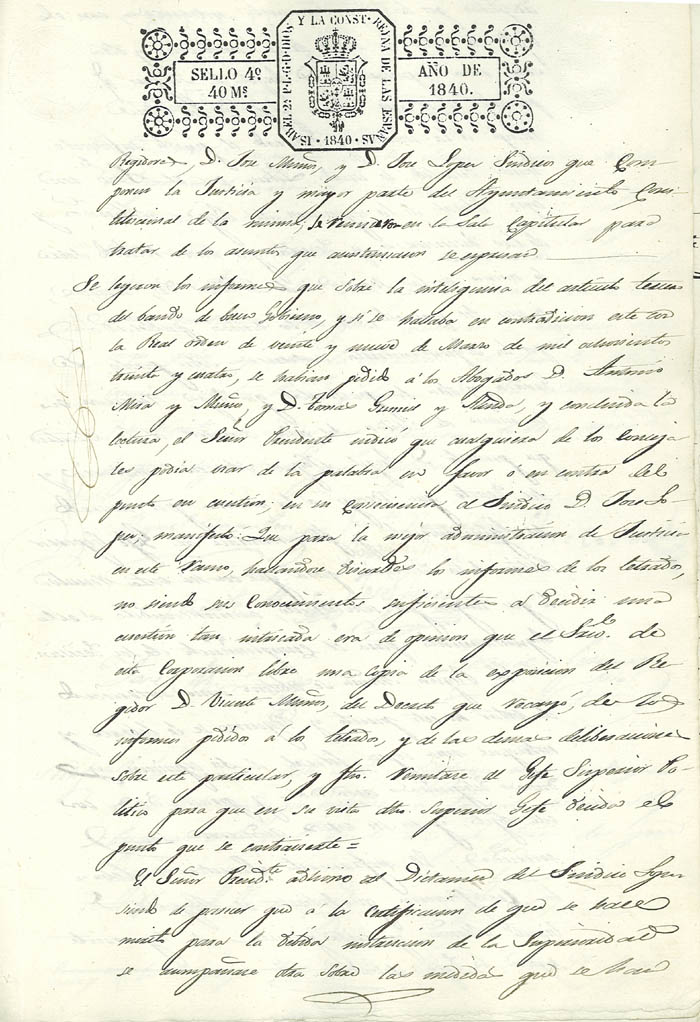 ISABEL 2ª P.L.G.D DIOS Y LA CONST. REYNA DE LAS ESPAÑAS
SELLO 4º
40 Ms
AÑO DE
1840.
· 1840 ·
Regidores, D. Jose Muñoz, y D. Jose Lopez Sindico que Com-
ponen la Justicia y mayor parte del Ayuntamiento Cons-
titucional de la misma, se reunieron en la Sala Capitular para
tratar de los asuntos que a continuacion se espresan
Se leyeron los informes que sobre la inteligencia del articulo tercero
del bando de buen Gobierno, y si se hallaba en contradicion este con
la Real orden de veinte y nueve de Marzo de mil ochocientos
treinta y cuatro, se habian pedido á los Abogados D. Antonio
Mira y Muñoz, y D. Tomas y , y concluida la
lectura, el Señor Presidente indicó que cualquiera de los Conceja
les podia usar de la palabra en favor o en contra del
punto en cuestion; en su Consecuencia el Sindico D. Jose Lo-
pez, manifestó: Que para la mejor administracion de Justicia
en este Ramo, hallandose discordes los informes de los letrados,
no siendo sus Conocimientos suficientes á decidir una
cuestion tan intrincada era de opinion que el Srio. de
esta Corporacion libre una Copia de la exposicion del Re-
gidor D. Vicente Muñoz, del Decreto que recayó, de los
informes pedidos á los letrados, y de las demas deliberaciones
sobre este particular, y fho. remitase al Gefe Superior Po-
litico para que en su vista dho. Superior Gefe decida el
punto que se controvierte =
El Señor Presidte. adirio al Dictamen del Sindico
siendo de parecer que á la Certificacion de que se hace
merito para la debida instruccion de la Superioridad
se acompañase otra sobre las medidas que se han